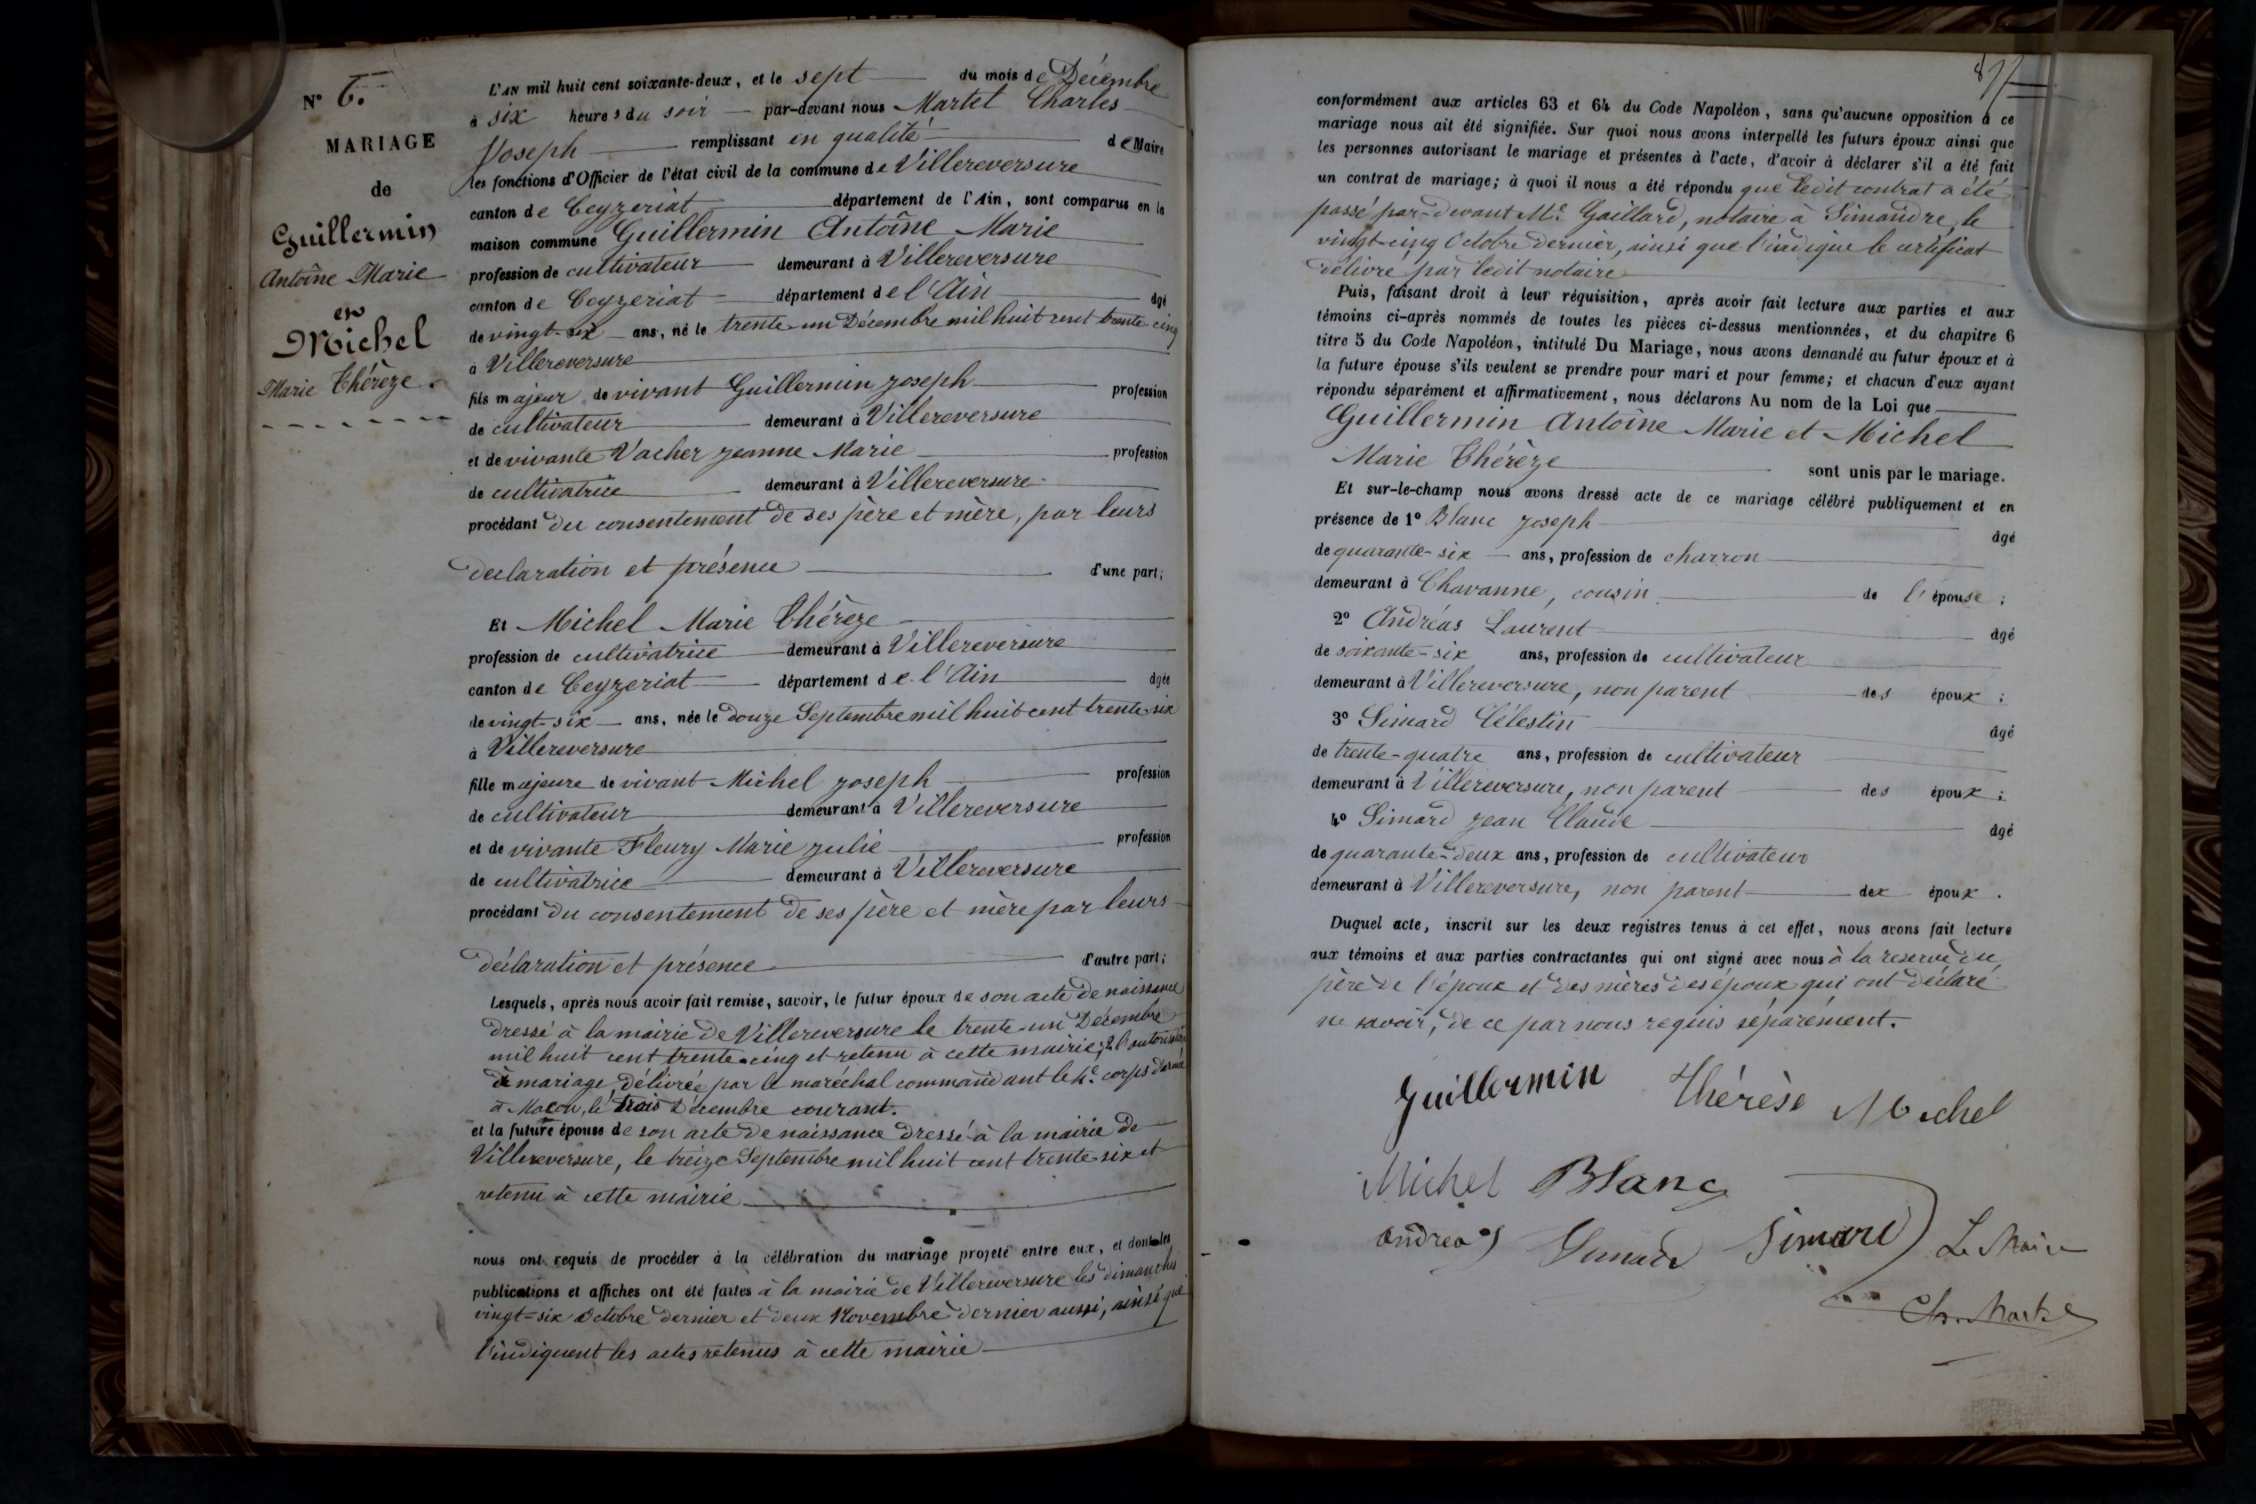 N° 6.
MARIAGE
de
Guillermin
Antoine Marie
et
Michel
Marie Thérèze.
L'AN mil huit cent soixante-deux, et le sept du mois de Décembre
à six heures du soir par-devant nous Martel Charles
Joseph remplissant en qualité de Maire
les fonctions d'Officier de l'état civil de la commune de Villereversure
canton de Ceyzeriat département de l'Ain, sont comparus en la
maison commune Guillermin Antoine Marie
profession de cultivateur demeurant à Villereversure
canton de Ceyzeriat département de l'Ain âgé
de vingt-six ans, né le trente-un Décembre mil huit cent trente cinq
à Villereversure
fils majeur de vivant Guillermin Joseph profession
de cultivateur demeurant à Villereversure
et de vivante Vacher Jeanne Marie profession
de cultivatrice demeurant à Villereversure
procédant du consentement de ses père et mère, par leurs
déclaration et présence d'une part;
Et Michel Marie Thérèze
profession de cultivatrice demeurant à Villereversure
canton de Ceyzeriat département de l'Ain âgée
de vingt-six ans, née le douze Septembre mil huit cent trente six
à Villereversure
fille majeure de vivant Michel Joseph profession
de cultivateur demeurant à Villereversure
et de vivante Fleury Marie Julie profession
de cultivatrice demeurant à Villereversure
procédant du consentement de ses père et mère par leurs
déclaration et présence d'autre part;
Lesquels, après nous avoir fait remise, savoir, le futur époux de son acte de naissance
dressé à la mairie de Villereversure le trente-un Décembre
mil huit cent trente-cinq et retenu à cette mairie; 2° l'autorisation
de mariage délivrée par le maréchal commandant le 4e corps d'armée
à Macon, le trois Décembre courant.
et la future épouse de son acte de naissance dressé à la mairie de
Villereversure, le treize Septembre mil huit cent trente six et
retenu à cette mairie
nous ont requis de procéder à la célébration du mariage projeté entre eux, et dont les
publications et affiches ont été faites à la mairie de Villereversure les dimanches
vingt-six Octobre dernier et deux Novembre dernier aussi, ainsi que
l'indiquent les actes retenus à cette mairie
conformément aux articles 63 et 64 du Code Napoléon, sans qu'aucune opposition à ce
mariage nous ait été signifiée. Sur quoi nous avons interpellé les futurs époux ainsi que
les personnes autorisant le mariage et présentes à l'acte, d'avoir à déclarer s'il a été fait
un contrat de mariage; à quoi il nous a été répondu que ledit contrat a été
passé par-devant Me Gaillard, notaire à Simandre, le
vingt-cinq Octobre dernier, ainsi que l'indique le certificat
délivré par ledit notaire
Puis, faisant droit à leur réquisition, après avoir fait lecture aux parties et aux
témoins ci-après nommés de toutes les pièces ci-dessus mentionnées, et du chapitre 6
titre 5 du Code Napoléon, intitulé Du Mariage, nous avons demandé au futur époux et à
la future épouse s'ils veulent se prendre pour mari et pour femme; et chacun d'eux ayant
répondu séparément et affirmativement, nous déclarons Au nom de la Loi que
Guillermin Antoine Marie et Michel
Marie Thérèze sont unis par le mariage.
Et sur-le-champ nous avons dressé acte de ce mariage célébré publiquement et en
présence de 1° Blanc Joseph âgé
de quarante-six ans, profession de charron
demeurant à Chavanne, cousin de l'épouse;
2° Andréas Laurent âgé
de soixante-six ans, profession de cultivateur
demeurant à Villereversure, non parent des époux;
3° Simard Célestin âgé
de trente-quatre ans, profession de cultivateur
demeurant à Villereversure, non parent des époux;
4° Simard Jean Claude âgé
de quarante-deux ans, profession de cultivateur
demeurant à Villereversure, non parent des époux.
Duquel acte, inscrit sur les deux registres tenus à cet effet, nous avons fait lecture
aux témoins et aux parties contractantes qui ont signé avec nous à la réserve du
père de l'époux et des mères des époux qui ont déclaré
ne savoir, de ce par nous requis séparément.
Guillermin Thérèse Michel
Michel Blanc
andreas Simard Simard Le Maire
Ch. Martel